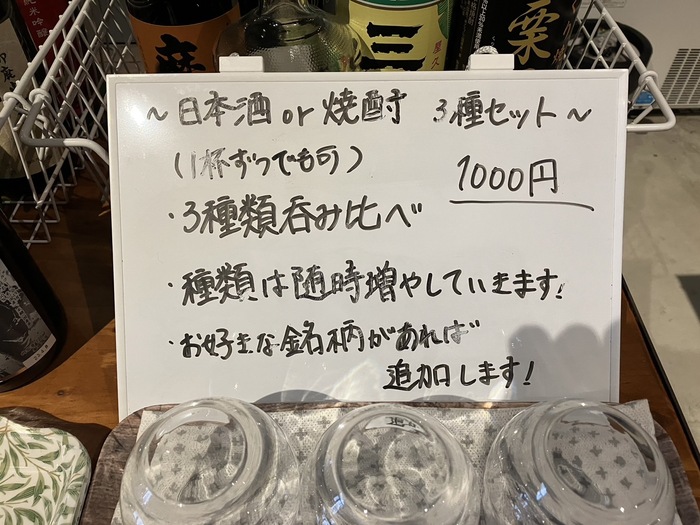 純米吟醸
三
栗
～日本酒or焼酎 3種セット～
(1杯ずつでも可)
1000円
・3種類呑み比べ
・種類は随時増やしていきます!
・お好きな銘柄があれば
追加します!